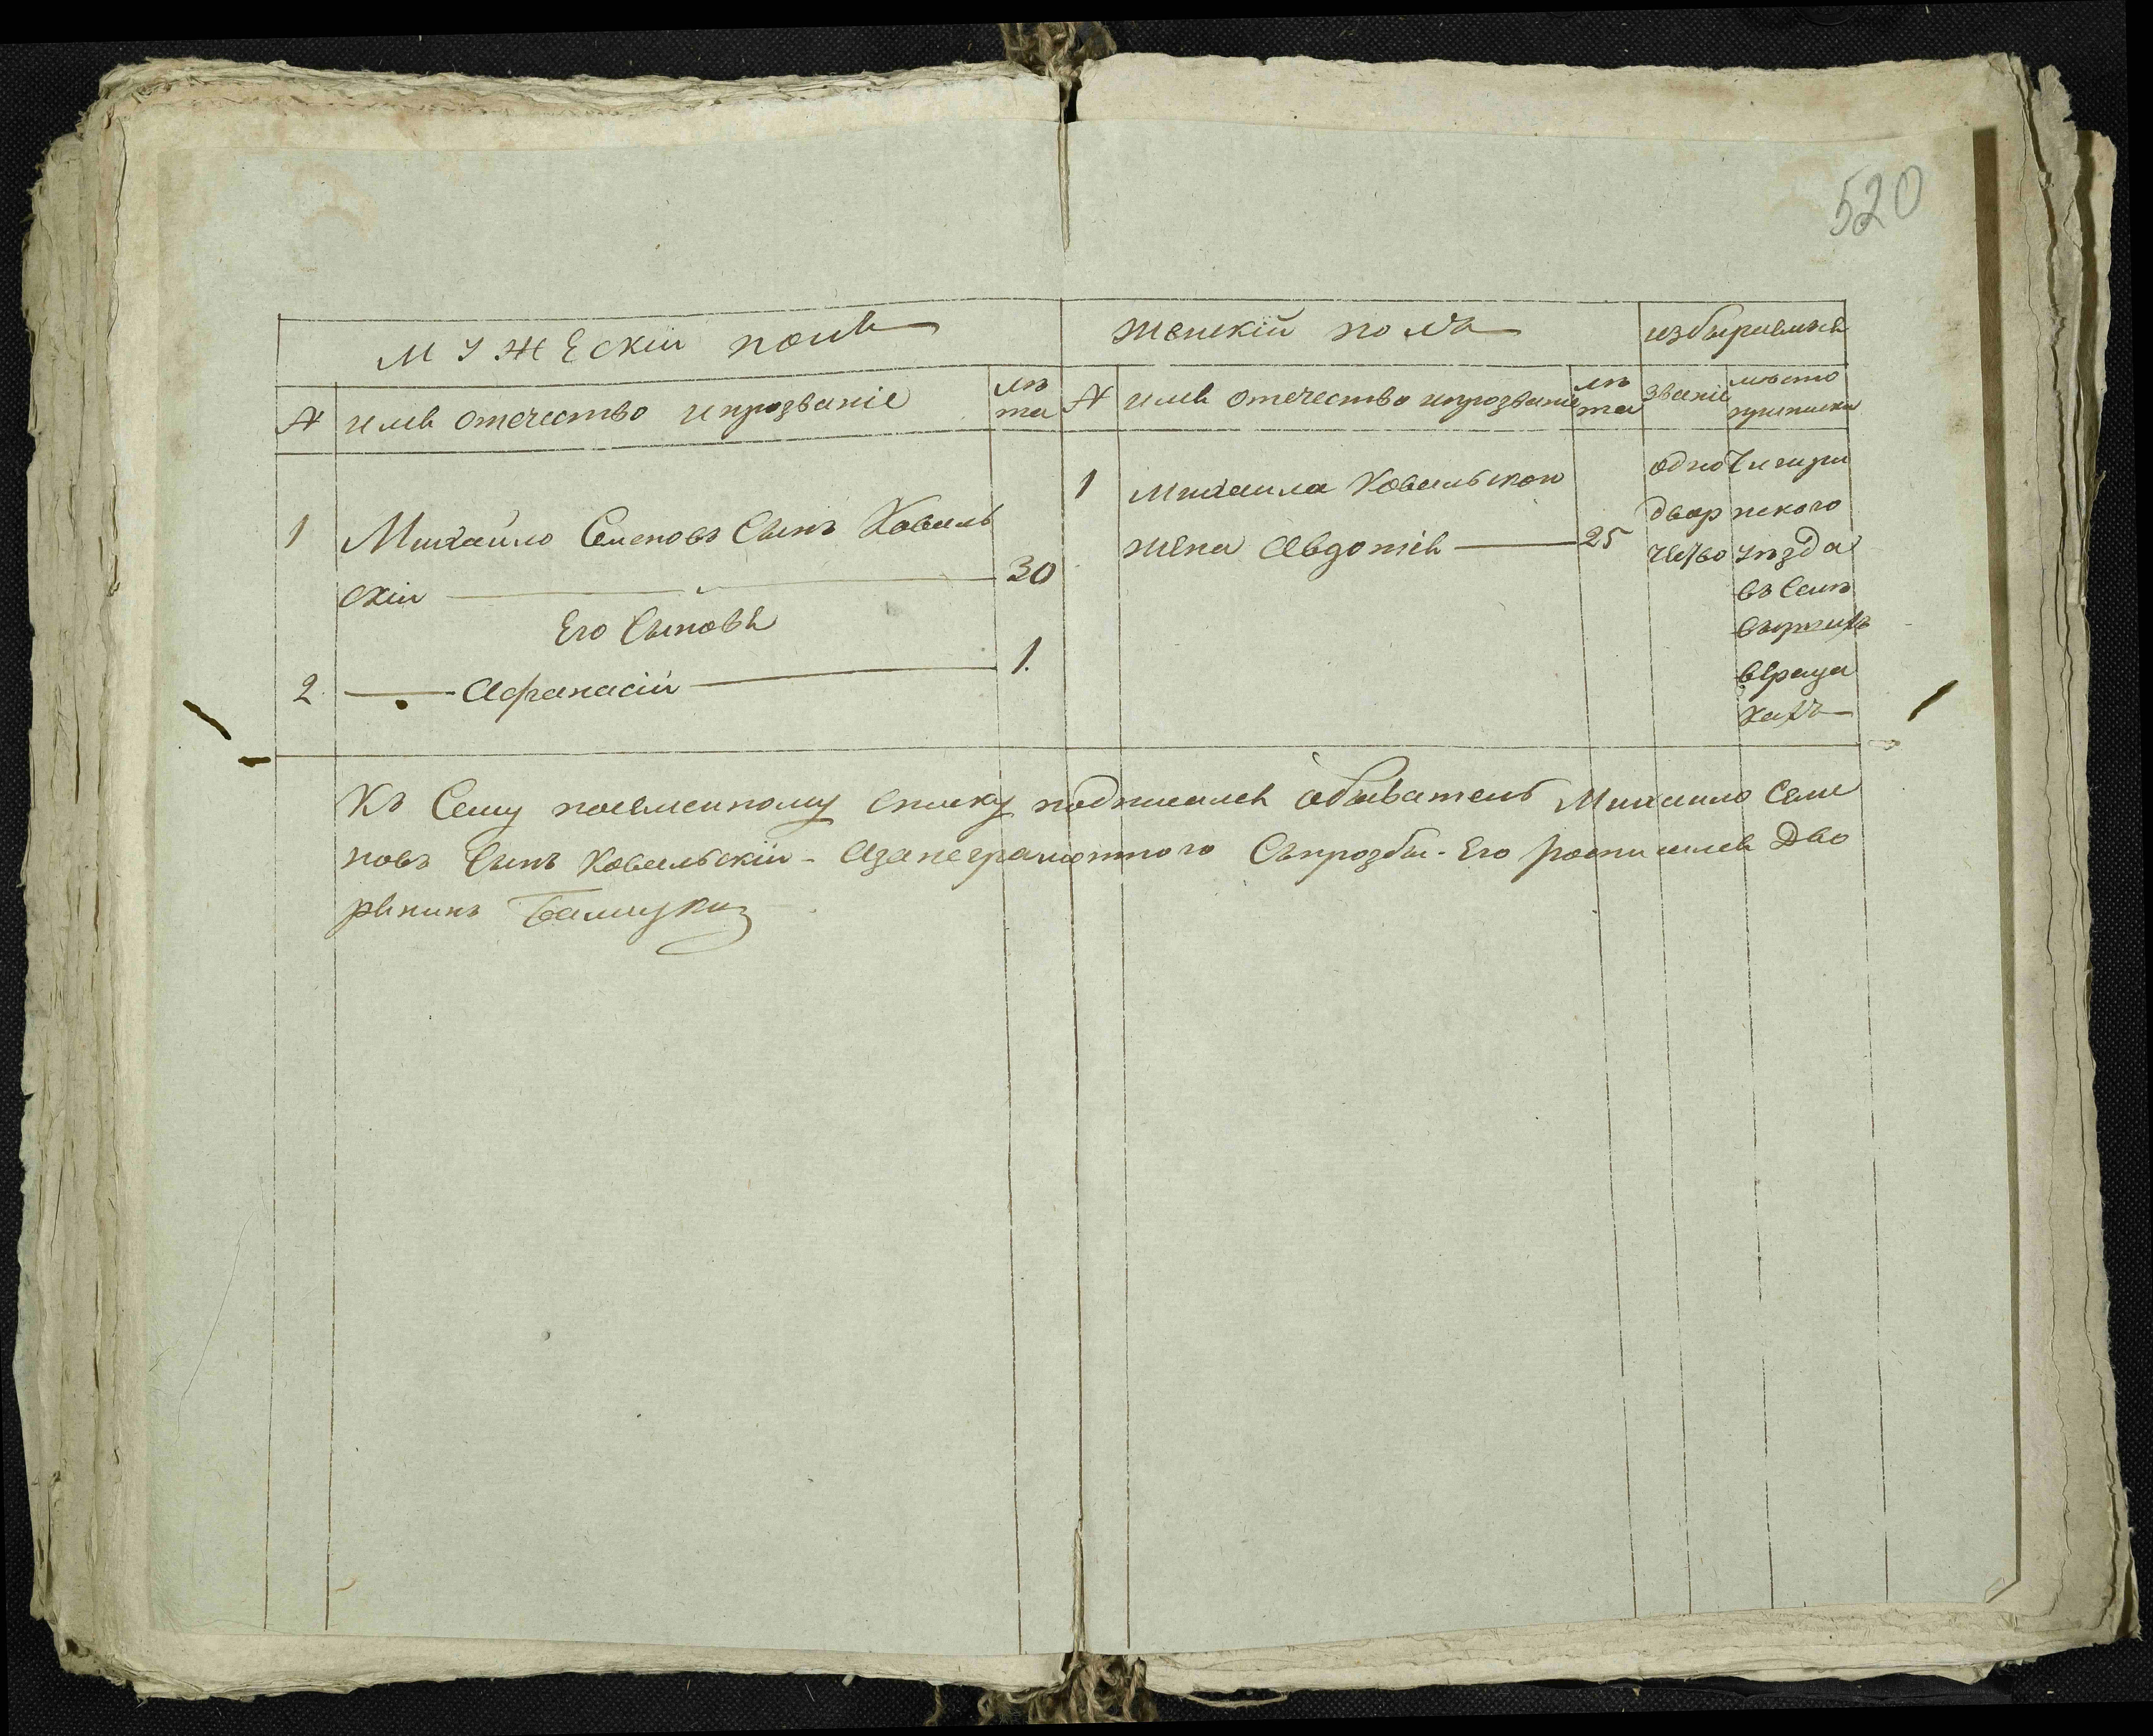 520
МУЖЕСКІЙ полъ
Женскій полъ
избыраемыя
№ имя отечество ипрозваніе лѣ
та
№ имя отечество ипрозваніе лѣ
та
званіе мѣсто
приписки
1 Михайло Семеновъ Сынъ Коваль
скій 30
Его Сыновя
2 Афанасій 1.
1 Михаила Ковальскои
жена Авдотія 25
одно
двор
чество
Чигири
нского
уѣзда
въ Селѣ
К Сему поеменному списку подписался обыватель Михаило Семе
новъ Сынъ Ковальскій - Азанеграмотного Съпрозбы - Его росписался Дво
рянинъ